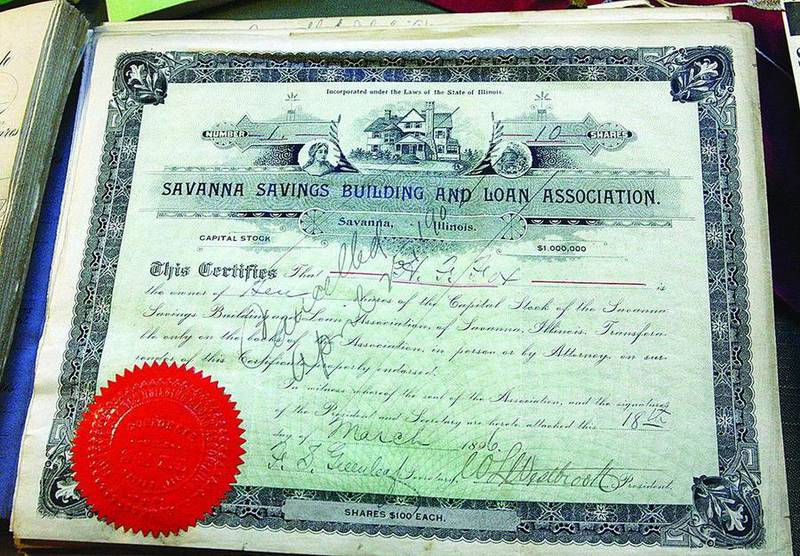 Incorporated under the Laws of the State of Illinois.
NUMBER 1. 10 SHARES
SAVANNA SAVINGS BUILDING AND LOAN ASSOCIATION.
Savanna, Illinois.
CAPITAL STOCK $1.000,000
This Certifies That A. G. Fox is
the owner of Ten Shares of the Capital Stock of the Savanna
Savings Building and Loan Association, of Savanna, Illinois. Transfera-
ble only on the books of Association, in person or by Attorney, on sur-
render of this Certificate properly endorsed.
Cancelled
April
In witness whereof the seal of the Association, and the signatures
of the President and Secretary are hereto attached this 18th
day of March 1886.
F. S. Greenleaf Secretary. W L Westbrook President.
SHARES $100 EACH.